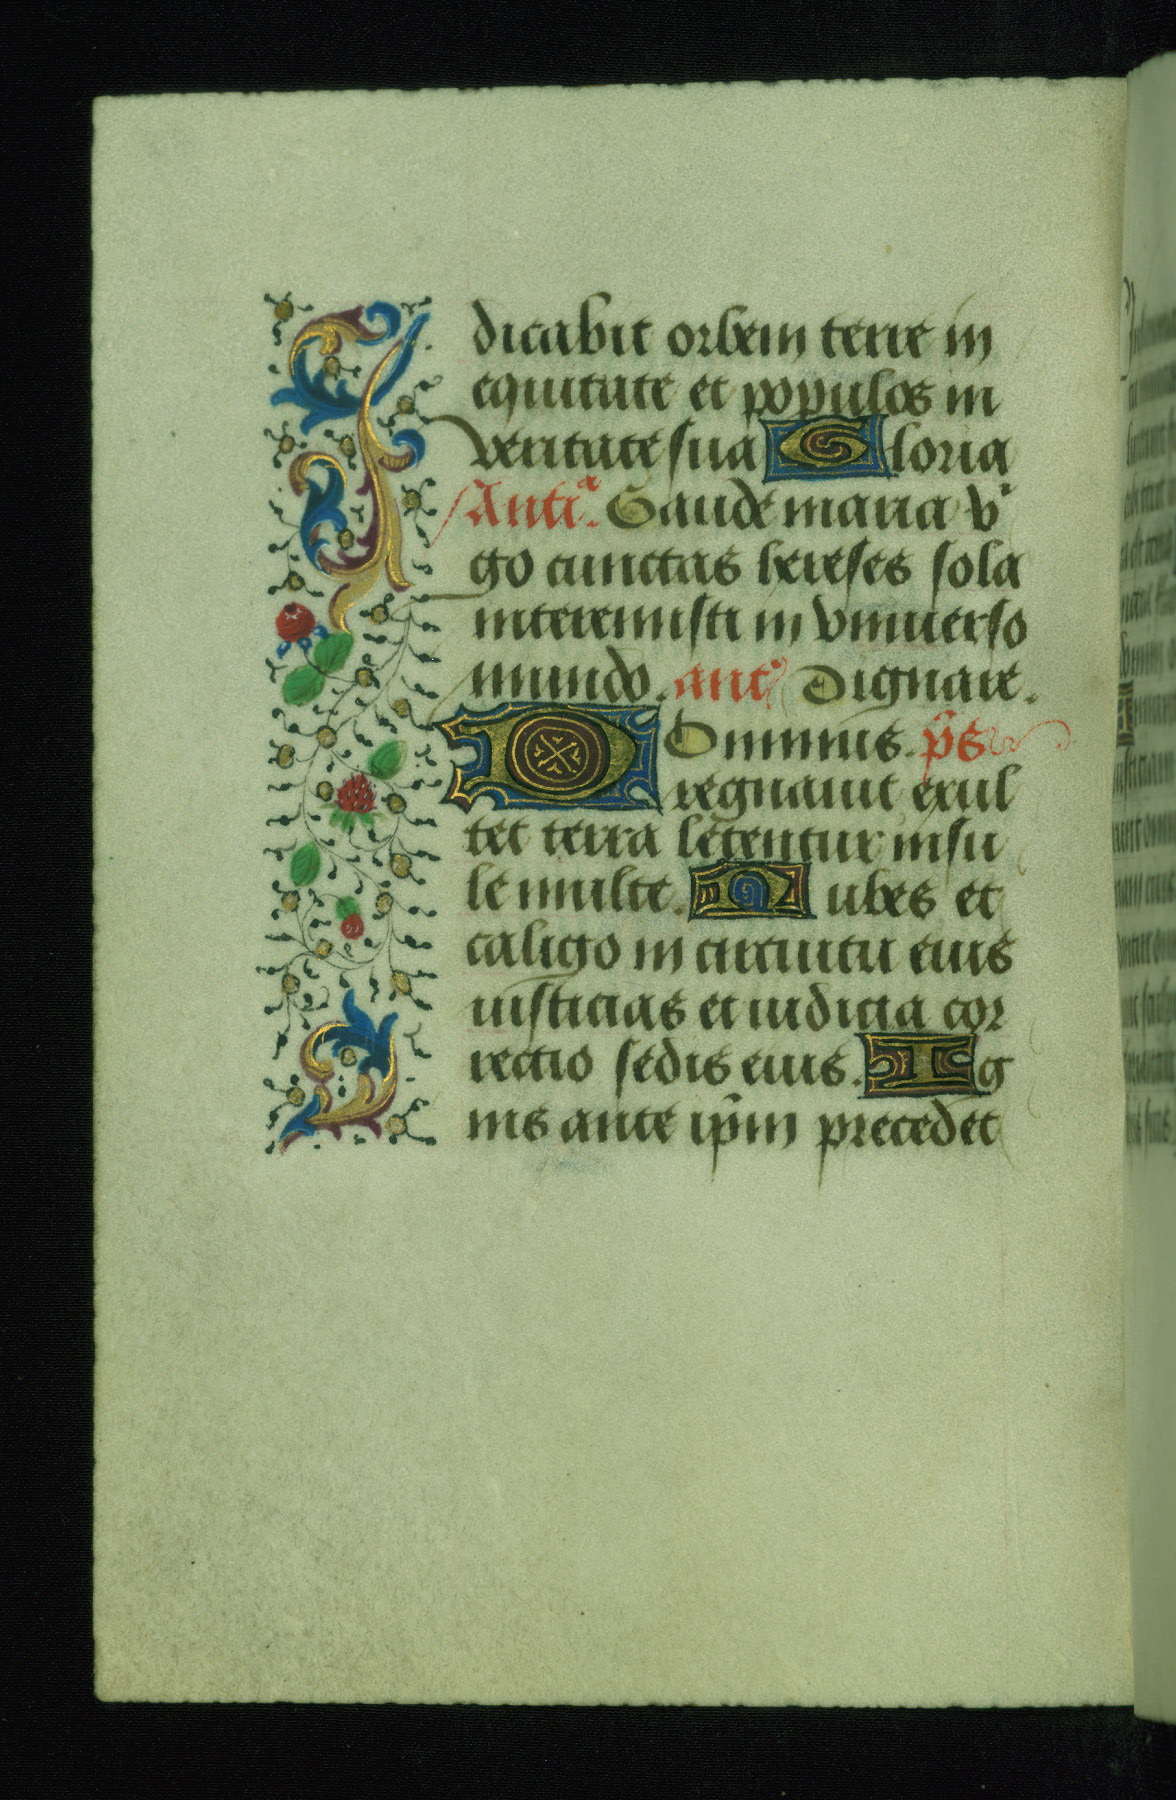 dicabit orbem terre in
equitate et populos in
veritate sua Gloria
Anti.ᵃ Gaude maria v'
go cunctas hereses sola
interemisti in vniuerso
mundo. ant.ᵃ Dignare.
Dominus. p̄s
regnauit exul
tet terra letentur insu
le multe. Nubes et
caligo in circuitu eius
iusticias et iudicia cor
rectio sedis eius. Ig
nis ante ip̄m precedet